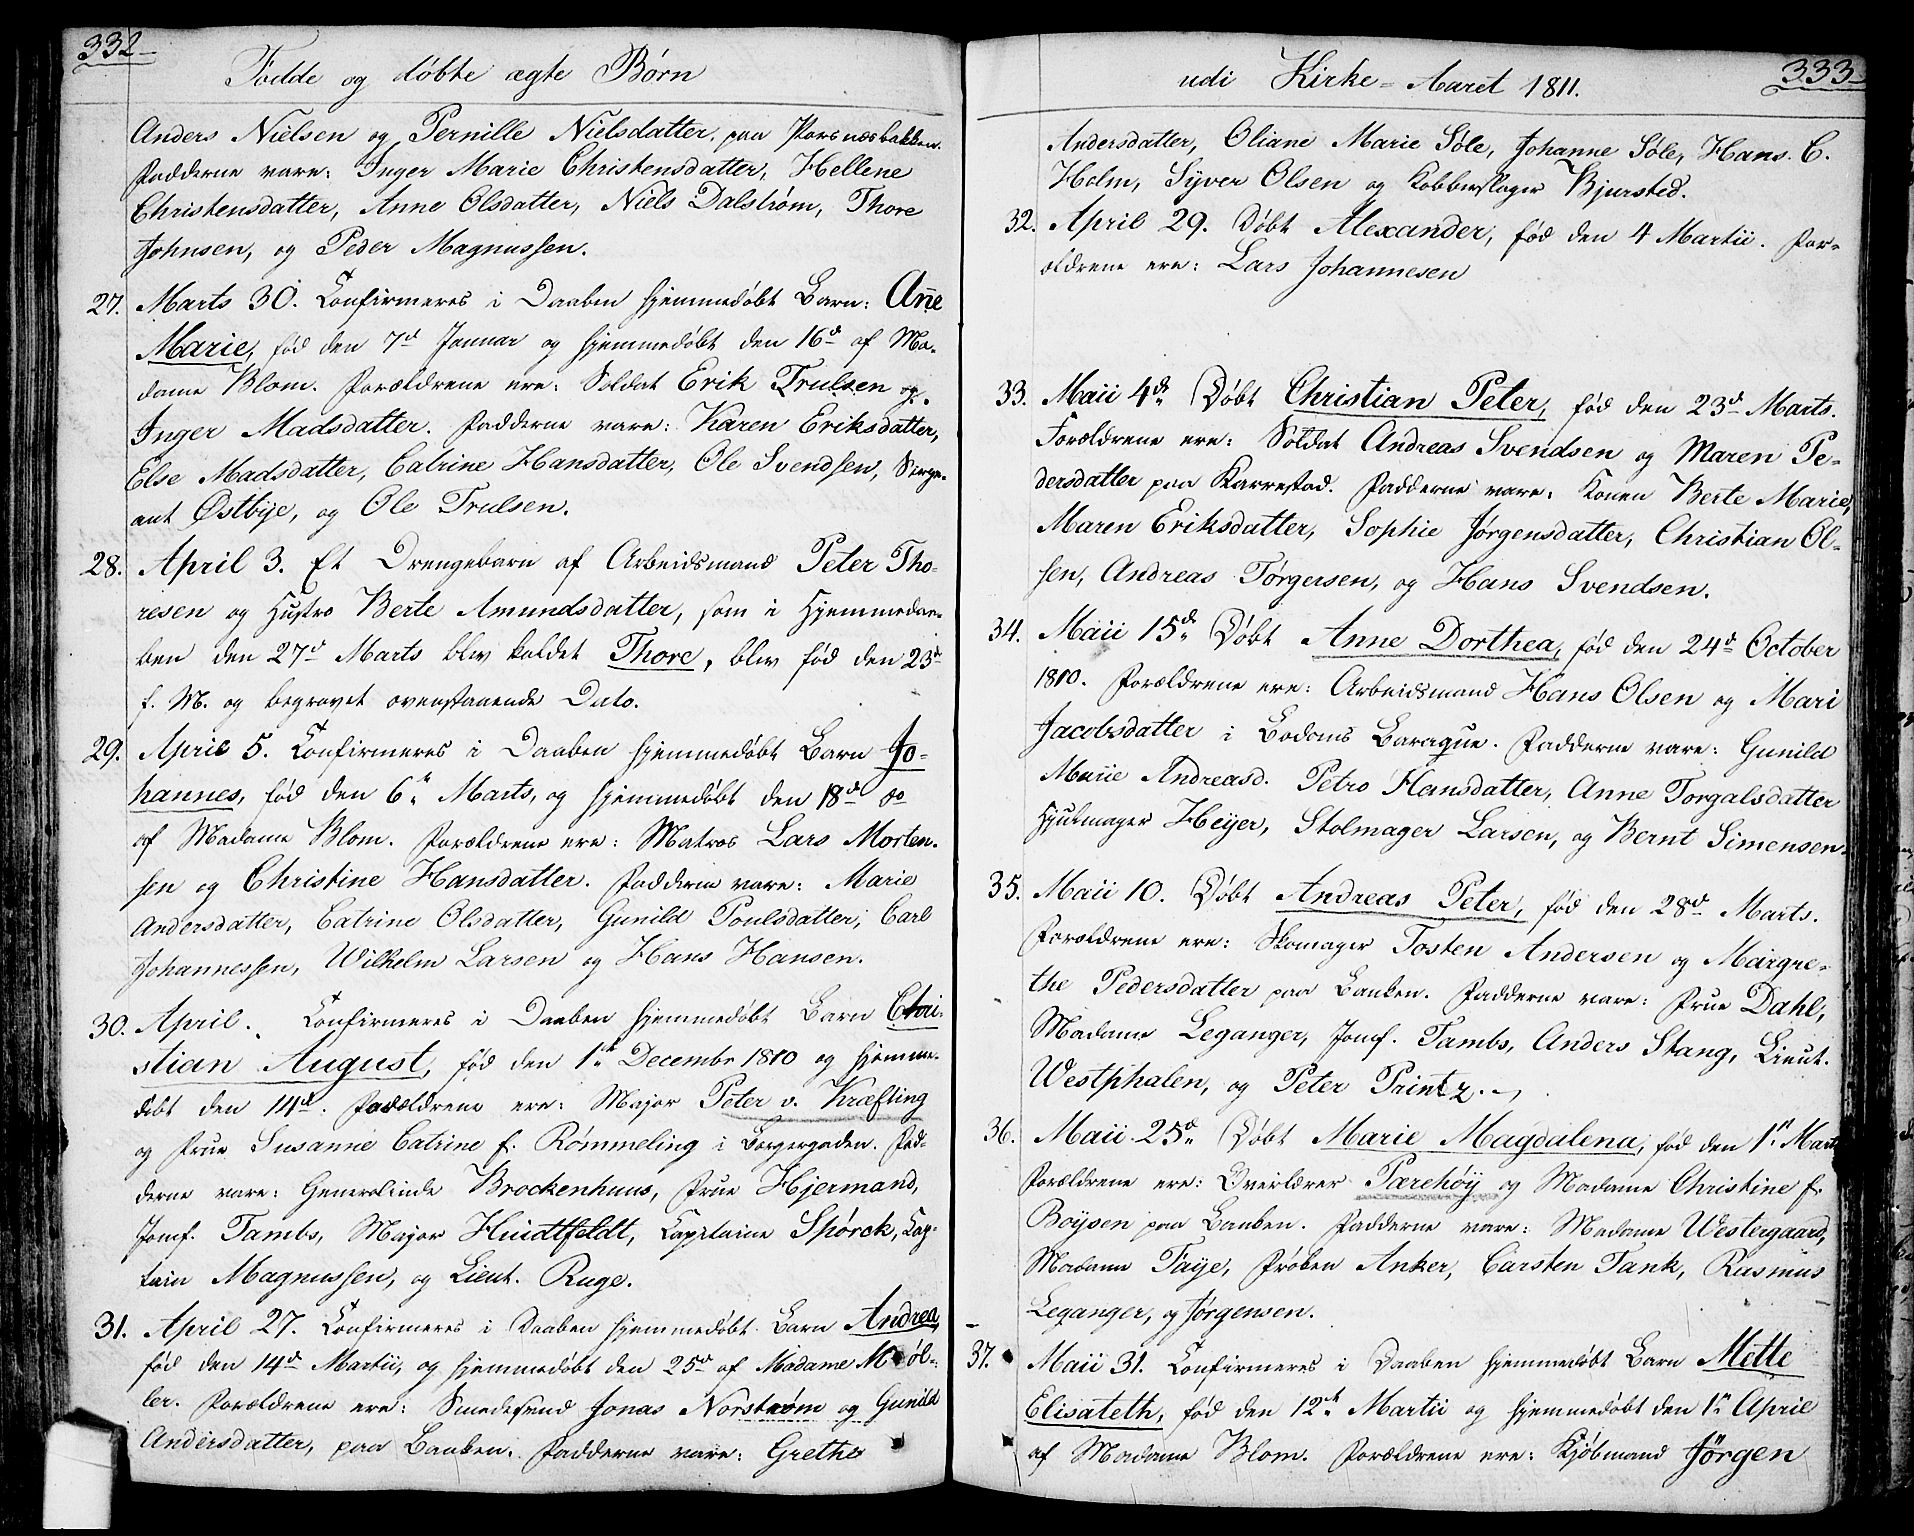 332
Fødde og døbte ægte Børn
Anders Nielsen og Pernille Nielsdatter paa Porsnæsbakken.
Fadderne vare: Inger Marie Christensdatter, Hellene
Christensdatter, Anne Olsdatter, Niels Dalstrøm, Thore
Johnsen, og Peder Magnussen.
27. Marts 30. Confirmeres i Daaben hjemmedøbt Barn: Anne
Marie, fød den 7d Januar og hjemmedøbt den 16d af Ma-
dame Blom. Forældrene ere: Soldat Erik Trulsen og
Inger Madsdatter. Fadderne vare: Karen Eriksdatter,
Else Madsdatter, Catrine Hansdatter, Ole Svendsen, Serge-
ant Østbye, og Ole Trulsen.
28. April 3. Et Drengebarn af Arbeidsmand Peter Tho-
resen og Hustro Berte Amundsdatter, som i Hjemmedaa-
ben den 27d Marts blev kaldet Thore, blev fød den 23d
f. M. og begravet ovenstaaende Dato.
29. April 5. Confirmeres i Daaben hjemmedøbt Barn Jo-
hannes, fød den 6te Marts, og hjemmedøbt den 18d do
af Madame Blom. Forældrene ere: Matros Lars Morten-
sen og Christine Hansdatter. Fadderne vare: Marie
Andersdatter, Catrine Olsdatter, Gunild Poulsdatter, Carl
Johannessen, Wilhelm Larsen og Hans Hansen.
30. April. Confirmeres i Daaben hjemmedøbt Barn Chri-
stian August, fød den 1te Decembr 1810 og hjemme-
døbt den 14d. Forældrene ere: Major Peter v. Kræfting
og Frue Susanne Catrine f. Rømmeling i Borgergaden. Fad-
derne vare: Generalinde Brockenhuus, Frue Hjermand,
Jomf. Tambs, Major Huidtfeldt, Capitaine Spørck, Cap-
tain Magnussen, og Lieut. Ruge.
31. April 27. Confirmeres i Daaben hjemmedøbt Barn Andrea,
fød den 14d Martii, og hjemmedøbt den 25d af Madame Møl-
ler. Forældrene ere: Smedesvend Jonas Norstrøm og Gunild
Andersdatter, paa Banken. Fadderne vare: Grethe
333
udi Kirke-Aaret 1811.
Andersdatter, Oliane Marie Søle, Johanne Søle, Hans C.
Holm, Syver Olsen og Kobberslager Bjursted.
32. April 29. Døbt Alexander, fød den 4 Martii. For-
ældrene ere: Lars Johannesen
33. Maii 4de Døbt Christian Peter, fød den 23d Marts.
Forældrene ere: Soldat Andreas Svendsen og Maren Pe-
dersdatter paa Karrestad. Fadderne vare: Konen Berte Marie,
Maren Eriksdatter, Sophie Jørgensdatter, Christian Ol-
sen, Andreas Tørgersen, og Hans Svendsen.
34. Maii 15de Døbt Anne Dorthea, fød den 24d October
1810. Forældrene ere: Arbeidsmand Hans Olsen og Mari
Jacobsdatter i Bodoms Baraque. Fadderne vare: Gunild
Marie Andreasd. Petro Hansdatter, Anne Torgalsdatter
Hjulmager Heyer, Stolmager Larsen, og Bernt Simensen.
35. Maii 10. Døbt Andreas Peter, fød den 28d Marts.
Forældrene ere: Skomager Tosten Andersen og Margre-
the Pedersdatter paa Banken. Fadderne vare: Frue Dahl,
Madame Leganger, Jomf. Tambs, Anders Stang, Lieut.
Westphalen, og Peter Printz.
36. Maii 25de Døbt Marie Magdalena, fød den 1te Marts
Forældrene ere: Overlærer Parehøy og Madame Christine f.
Boysen paa Banken. Fadderne vare: Madame Westergaard,
Madame Faye, Prøben Anker, Carsten Tank, Rasmus
Leganger, og Jørgensen.
37. Maii 31. Confirmeres i Daaben hjemmedøbt Barn Mette
Elisateth, fød den 12te Martii og hjemmedøbt den 1te April
af Madame Blom. Forældrene ere: Kjøbmand Jørgen